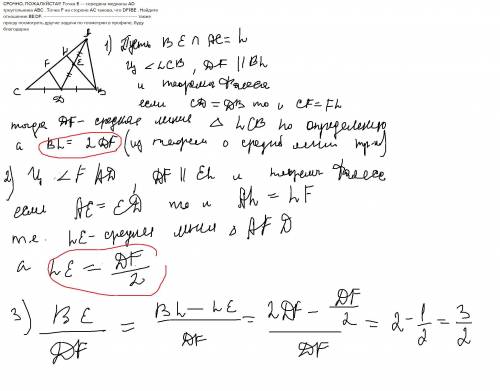 СРОЧНО, ПОЖАЛУЙСТА!!! Точка E — середина медианы AD
треугольника ABC . Точка F на стороне AC такова, что DF||BE . Найдите
отношение BE:DF. также
прошу посмотреть другие задачи по геометрии в профиле, буду
благодарна
A
F
L
E
C
D
B
1) Пусть BE ∩ AC = L
Из ∠LCB, DF || BL
и теорема Фалеса
если CD = DB то и CF = FL
тогда DF - средняя линия △ LCB по определению
а BL = 2DF (из теорем о средн линии тр-ка)
2) Из ∠FAD, DF || EL и теорема Фалеса
если AE = ED то и AL = LF
т.е. LE - средняя линия △ AFD
а LE = DF/2
3) BE/DF = (BL - LE)/DF = (2DF - DF/2)/DF = 2 - 1/2 = 3/2